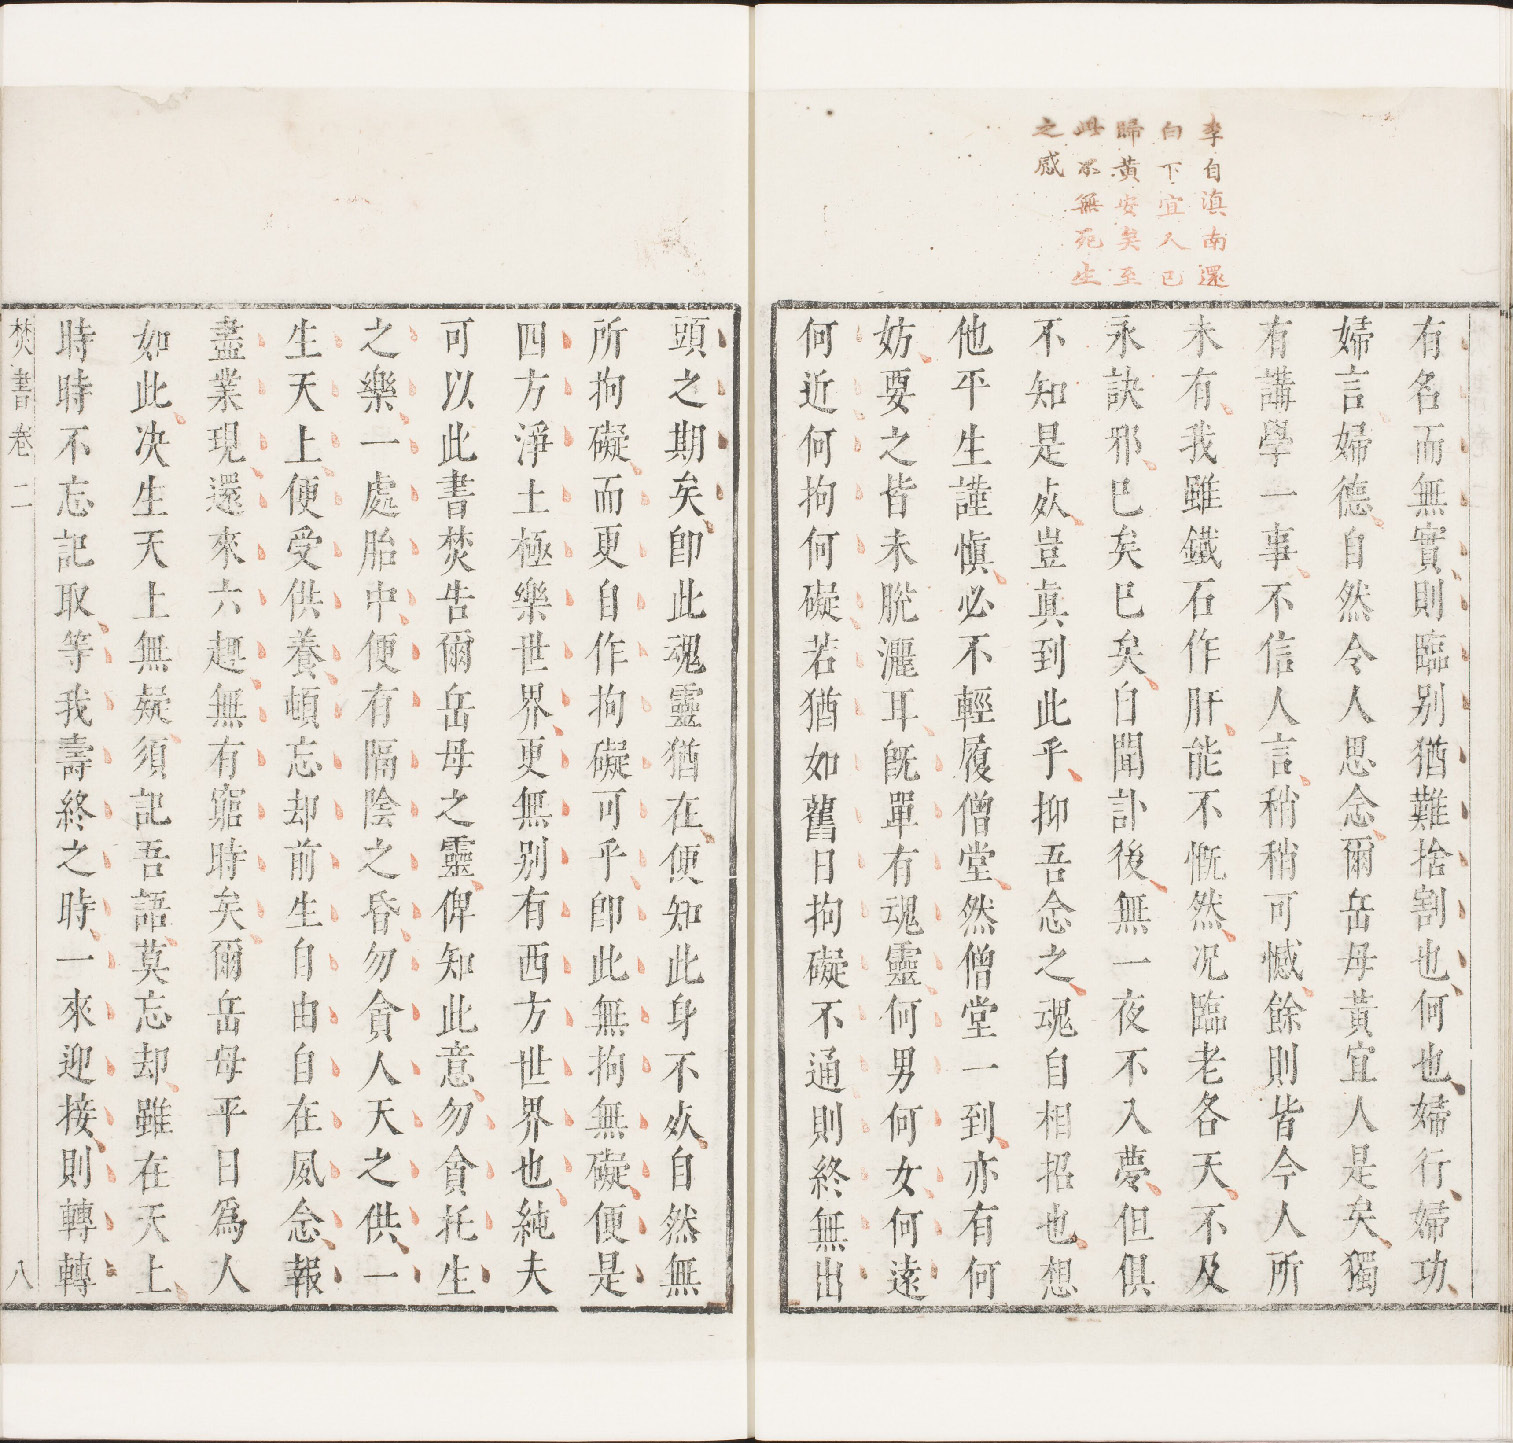 李自滇南還
白下宜人已
歸黃安矣至
此不無死生
之感
有名而無實則臨别猶難捨割也何也婦行婦功
婦言婦德自然令人思念爾岳母黃宜人是矣獨
有講學一事不信人言稍稍可憾餘則皆今人所
未有我雖鐵石作肝能不慨然况臨老各天不及
永訣邪已矣已矣自聞訃後無一夜不入夢但俱
不知是㱔豈眞到此乎抑吾念之魂自相招也想
他平生謹慎必不輕履僧堂然僧堂一到亦有何
妨要之皆未脫灑耳旣單有魂靈何男何女何遠
何近何拘何礙若猶如舊日拘礙不通則終無出
頭之期矣卽此魂靈猶在便知此身不㱔自然無
所拘礙而更自作拘礙可乎卽此無拘無礙便是
四方淨土極樂世界更無别有西方世界也純夫
可以此書焚告爾岳母之靈俾知此意勿貪托生
之樂一處胎中便有隔陰之昏勿貪人天之供一
生天上便受供養頓忘却前生自由自在夙念報
盡業現還來六趣無有窮時矣爾岳母平日爲人
如此决生天上無疑須記吾語莫忘却雖在天上
時時不忘記取等我壽終之時一來迎接則轉轉
焚書卷二
八